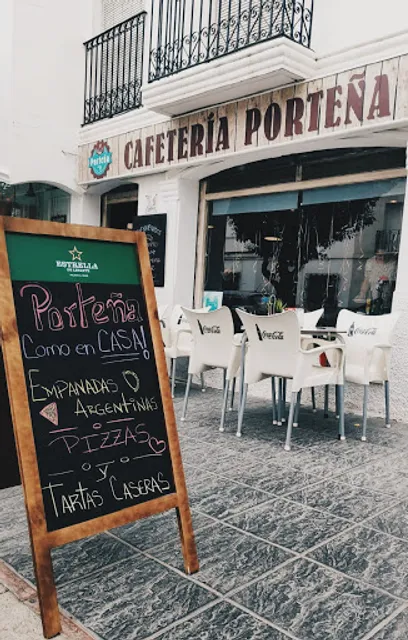 CAFETERÍA PORTEÑA
Porteña
ESTRELLA
DE LEVANTE
Porteña
Como en CASA!
EMPANADAS
ARGENTINAS
PIZZAS
y
TARTAS CASERAS
Coca-Cola
Coca-Cola
Coca-Cola